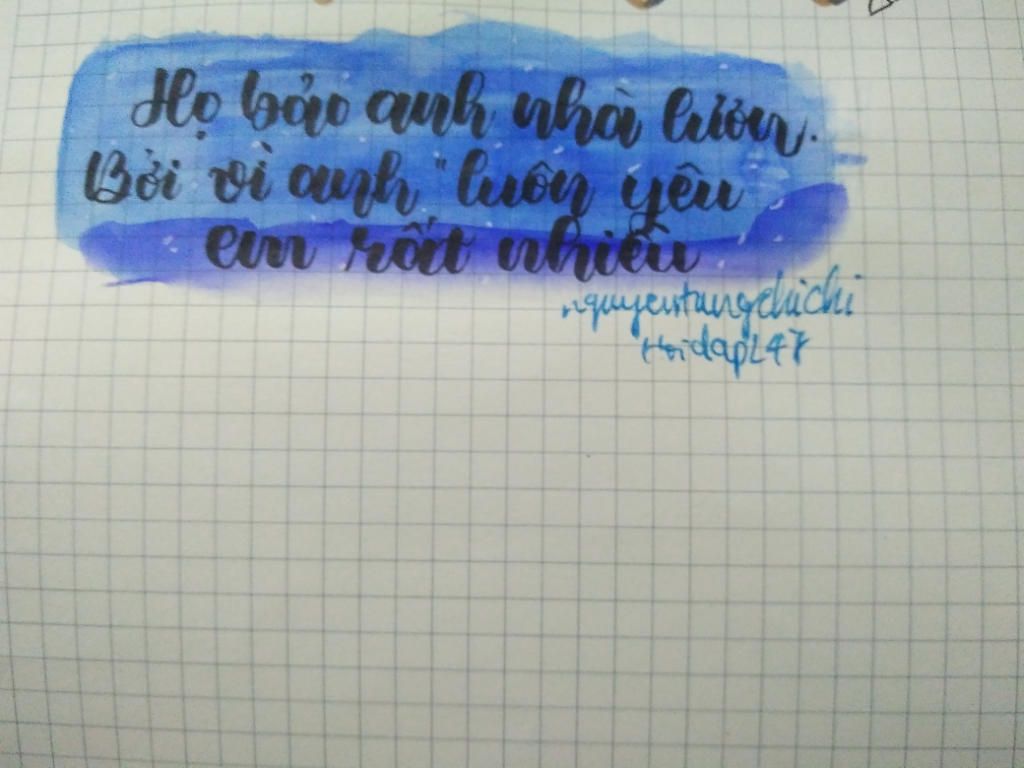 Họ bảo anh nhà lươn.
Bởi vì anh "luôn yêu
em rất nhiều
nguyentungchichi
Hoidap247